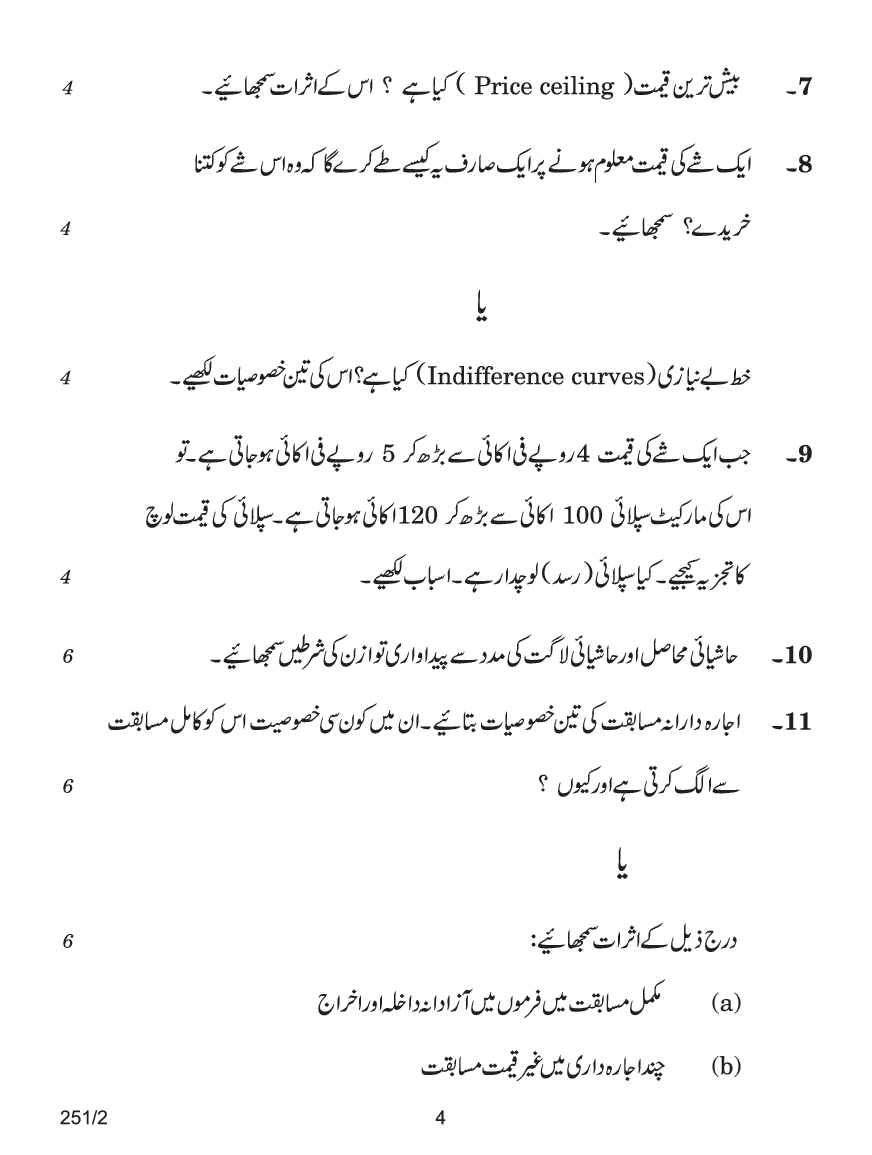 7۔ بیش ترین قیمت ( Price ceiling ) کیا ہے ؟ اس کے اثرات سمجھائیے۔ 4
8۔ ایک شے کی قیمت معلوم ہونے پر ایک صارف یہ کیسے طے کرے گا کہ وہ اس شے کو کتنا
خریدے؟ سمجھائیے۔ 4
یا
خط بے نیازی (Indifference curves) کیا ہے؟ اس کی تین خصوصیات لکھیے۔ 4
9۔ جب ایک شے کی قیمت 4 روپے فی اکائی سے بڑھ کر 5 روپے فی اکائی ہو جاتی ہے۔ تو
اس کی مارکیٹ سپلائی 100 اکائی سے بڑھ کر 120 اکائی ہو جاتی ہے۔ سپلائی کی قیمت لوچ
کا تجزیہ کیجیے۔ کیا سپلائی (رسد) لوچدار ہے۔ اسباب لکھیے۔ 4
10۔ حاشیائی محاصل اور حاشیائی لاگت کی مدد سے پیداواری توازن کی شرطیں سمجھائیے۔ 6
11۔ اجارہ دارانہ مسابقت کی تین خصوصیات بتائیے۔ ان میں کون سی خصوصیت اس کو کامل مسابقت
سے الگ کرتی ہے اور کیوں ؟ 6
یا
درج ذیل کے اثرات سمجھائیے: 6
(a) مکمل مسابقت میں فرموں میں آزادانہ داخلہ اور اخراج
(b) چند اجارہ داری میں غیر قیمت مسابقت
251/2 4